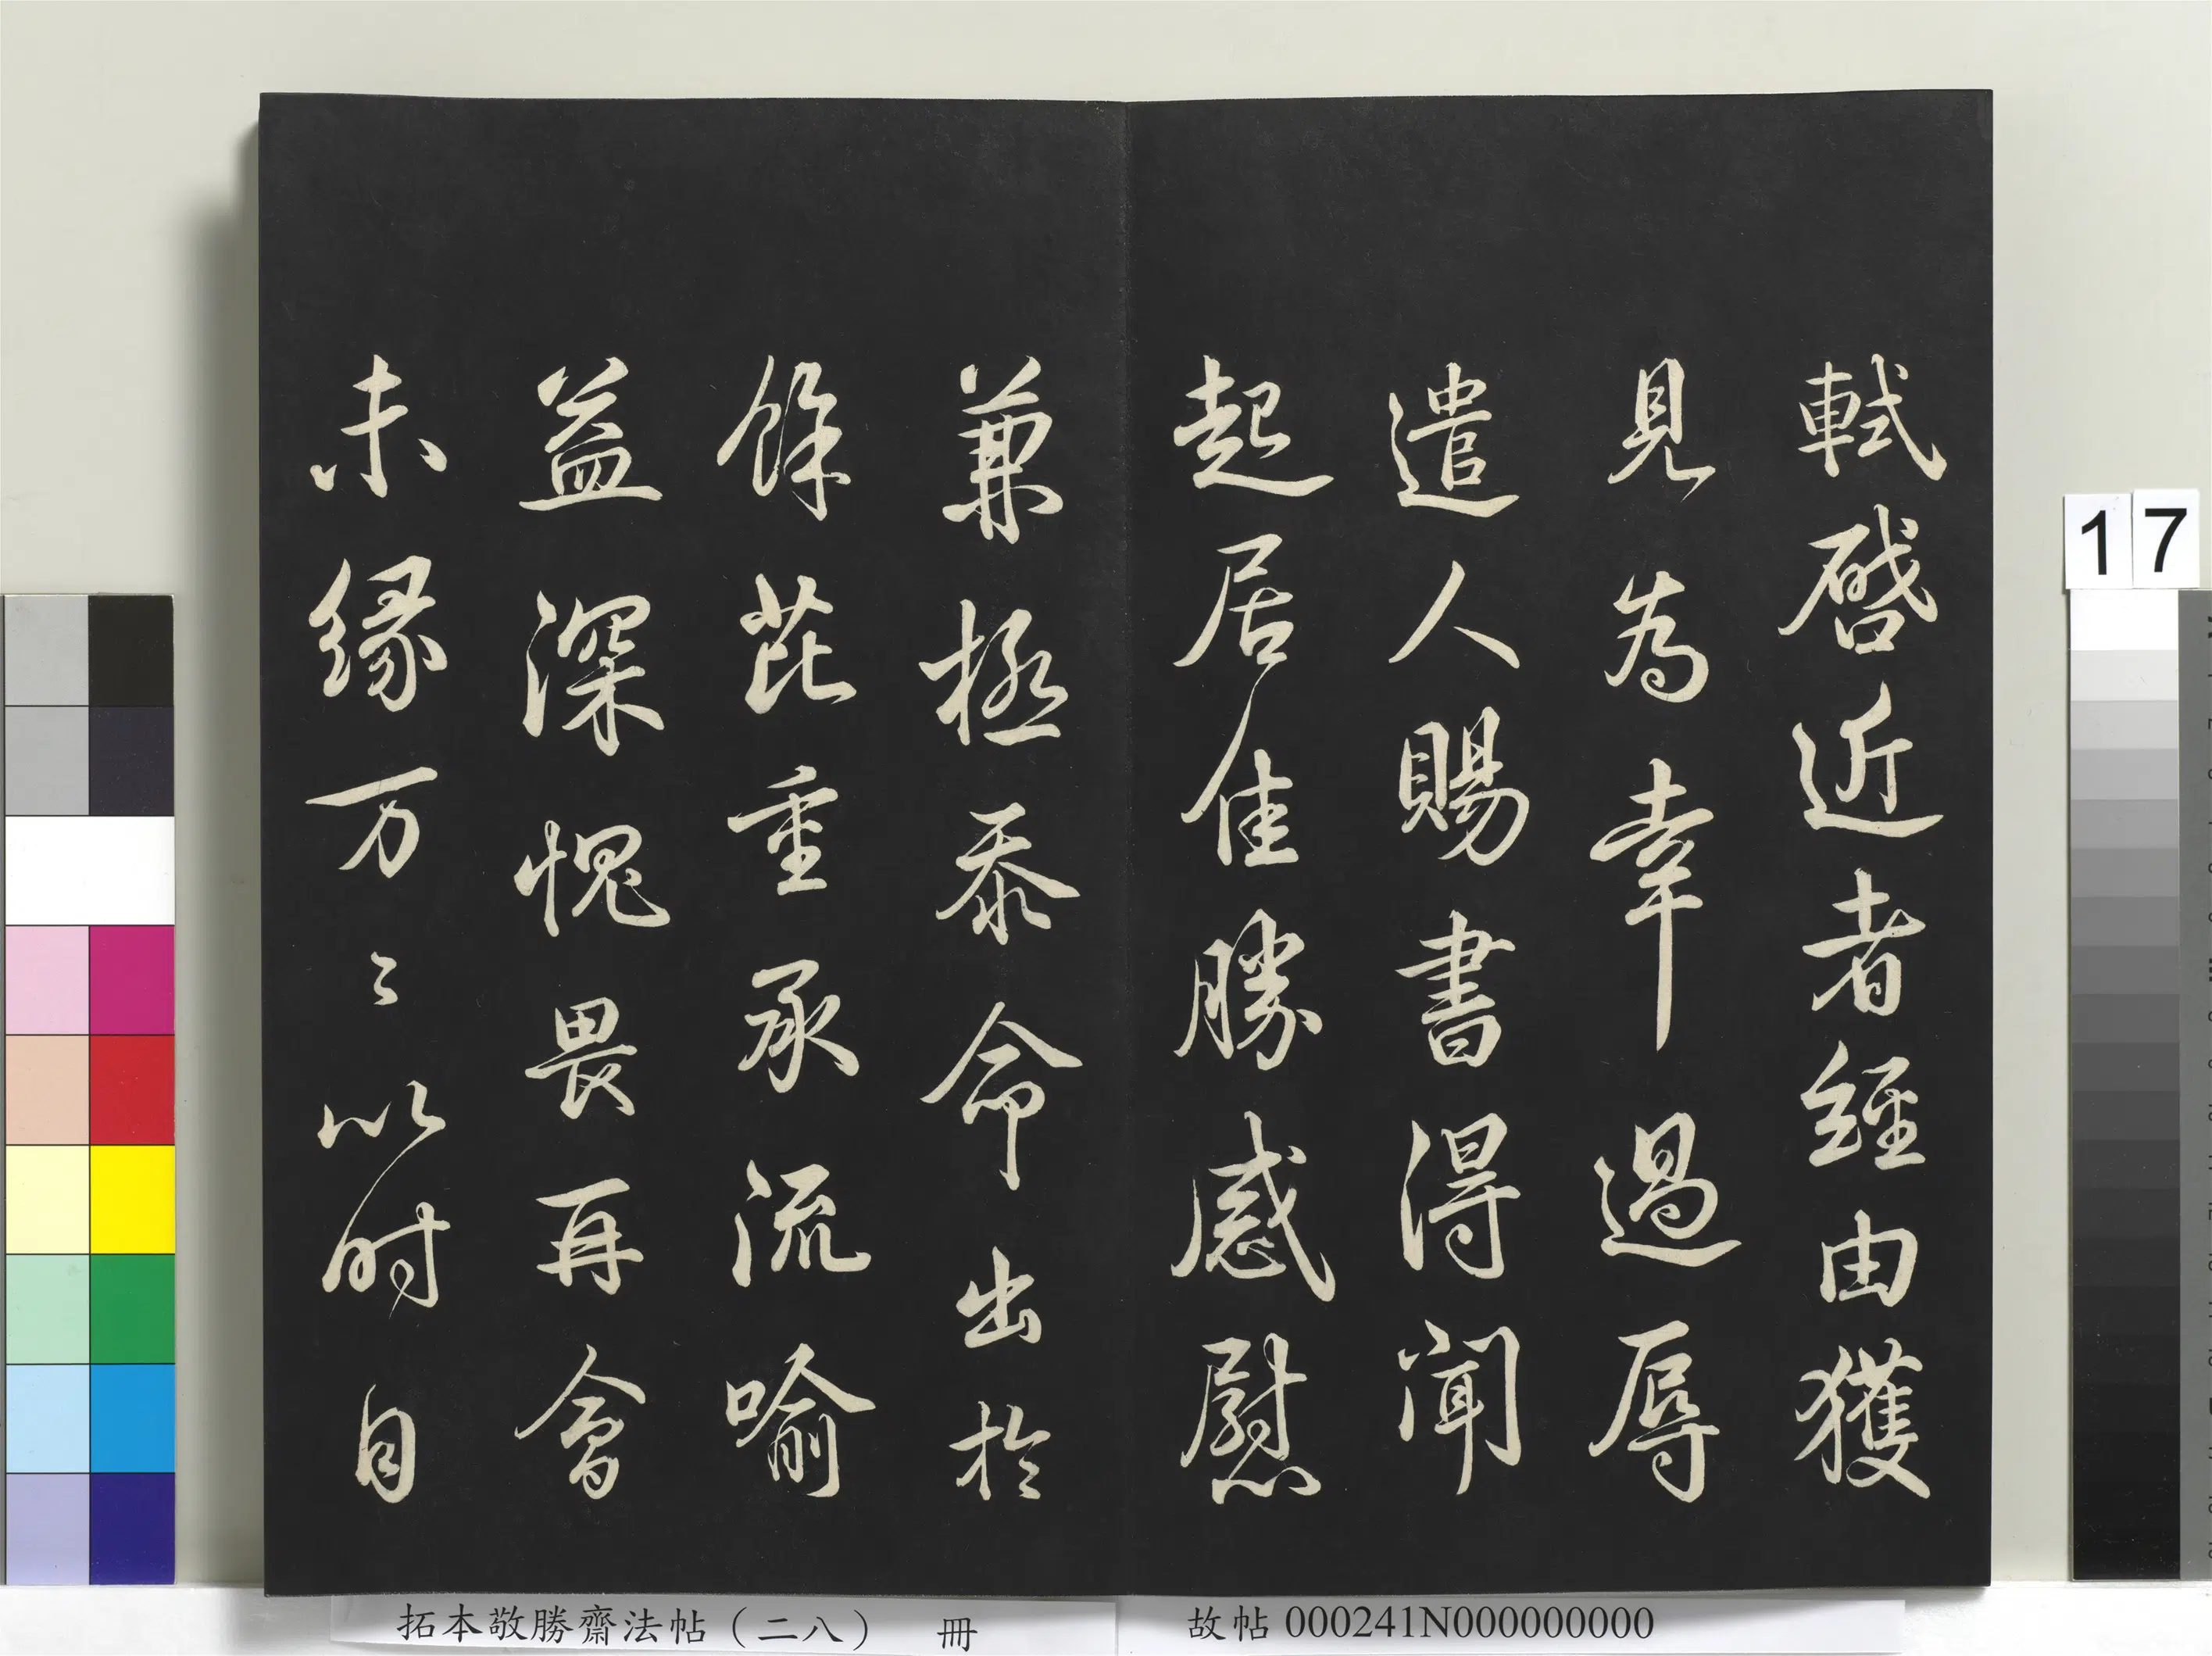 軾啓近者經由獲
見為幸過辱
遣人賜書得聞
起居佳勝感慰
兼極忝命出於
餘芘重承流喻
益深愧畏再會
未縁万〻以时自
17
拓本敬勝齋法帖（二八） 冊
故帖000241N000000000